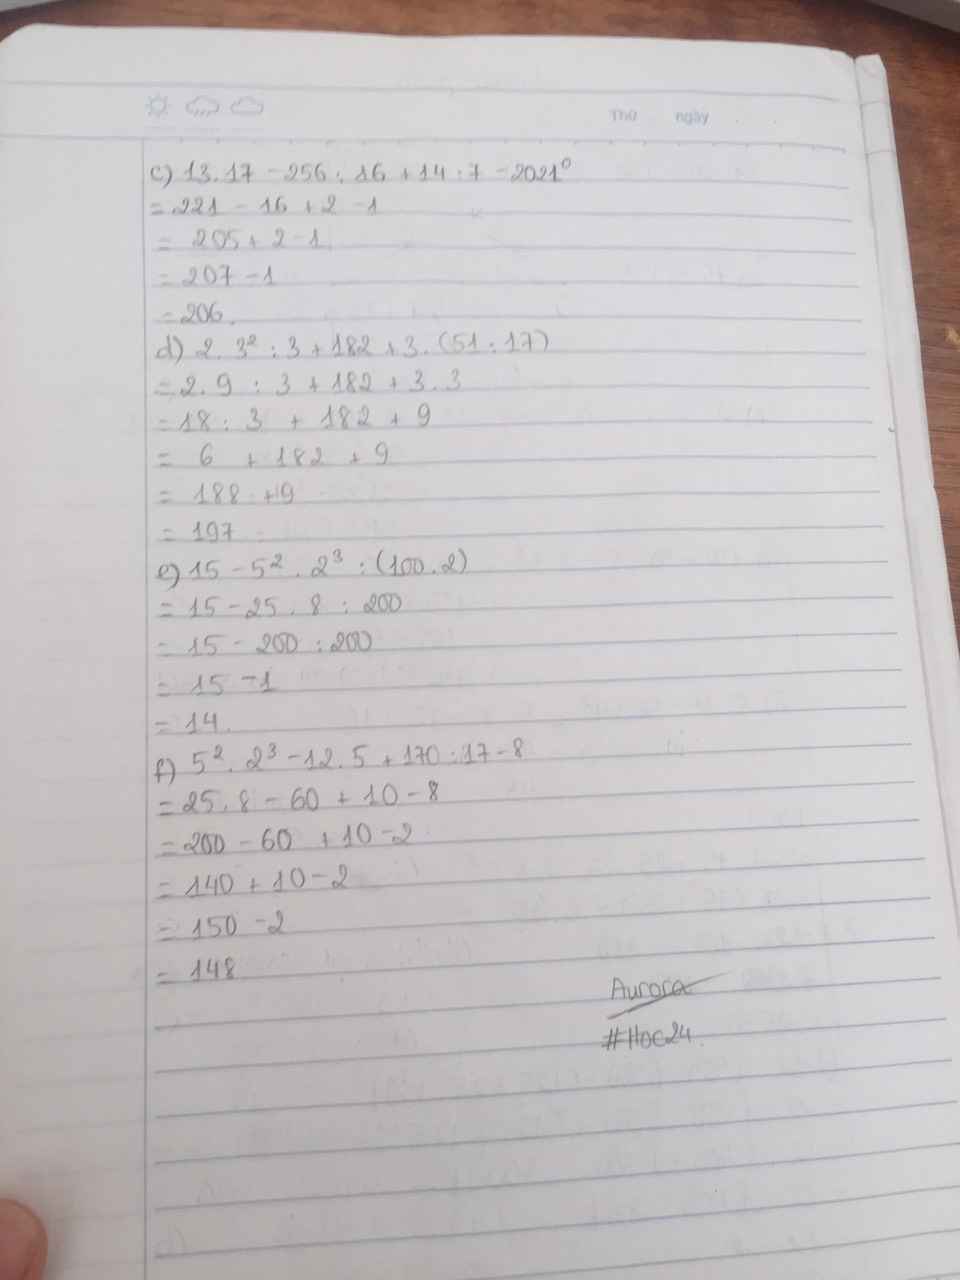 Thứ ngày
c) 13.17 - 256 : 16 + 14 : 7 - 2021⁰
= 221 - 16 + 2 - 1
= 205 + 2 - 1
= 207 - 1
= 206.
d) 2. 3² : 3 + 182 + 3. (51 : 17)
= 2. 9 : 3 + 182 + 3. 3
= 18 : 3 + 182 + 9
= 6 + 182 + 9
= 188 + 9
= 197
e) 15 - 5² . 2³ : (100. 2)
= 15 - 25 . 8 : 200
= 15 - 200 : 200
= 15 - 1
= 14.
f) 5² . 2³ - 12. 5 + 170 : 17 - 8
= 25. 8 - 60 + 10 - 8
= 200 - 60 + 10 - 2
= 140 + 10 - 2
= 150 - 2
= 148
Aurora
#Hoc24.